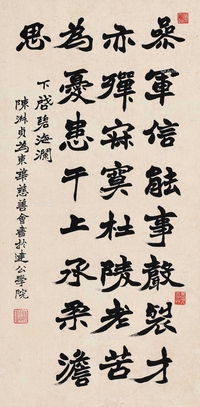 參軍信能事聲才
亦殫寂寞杜陵老苦
為憂患干上承柔澹
思
下啓碧海瀾
陳淋貞為東華慈善會書於建公學院